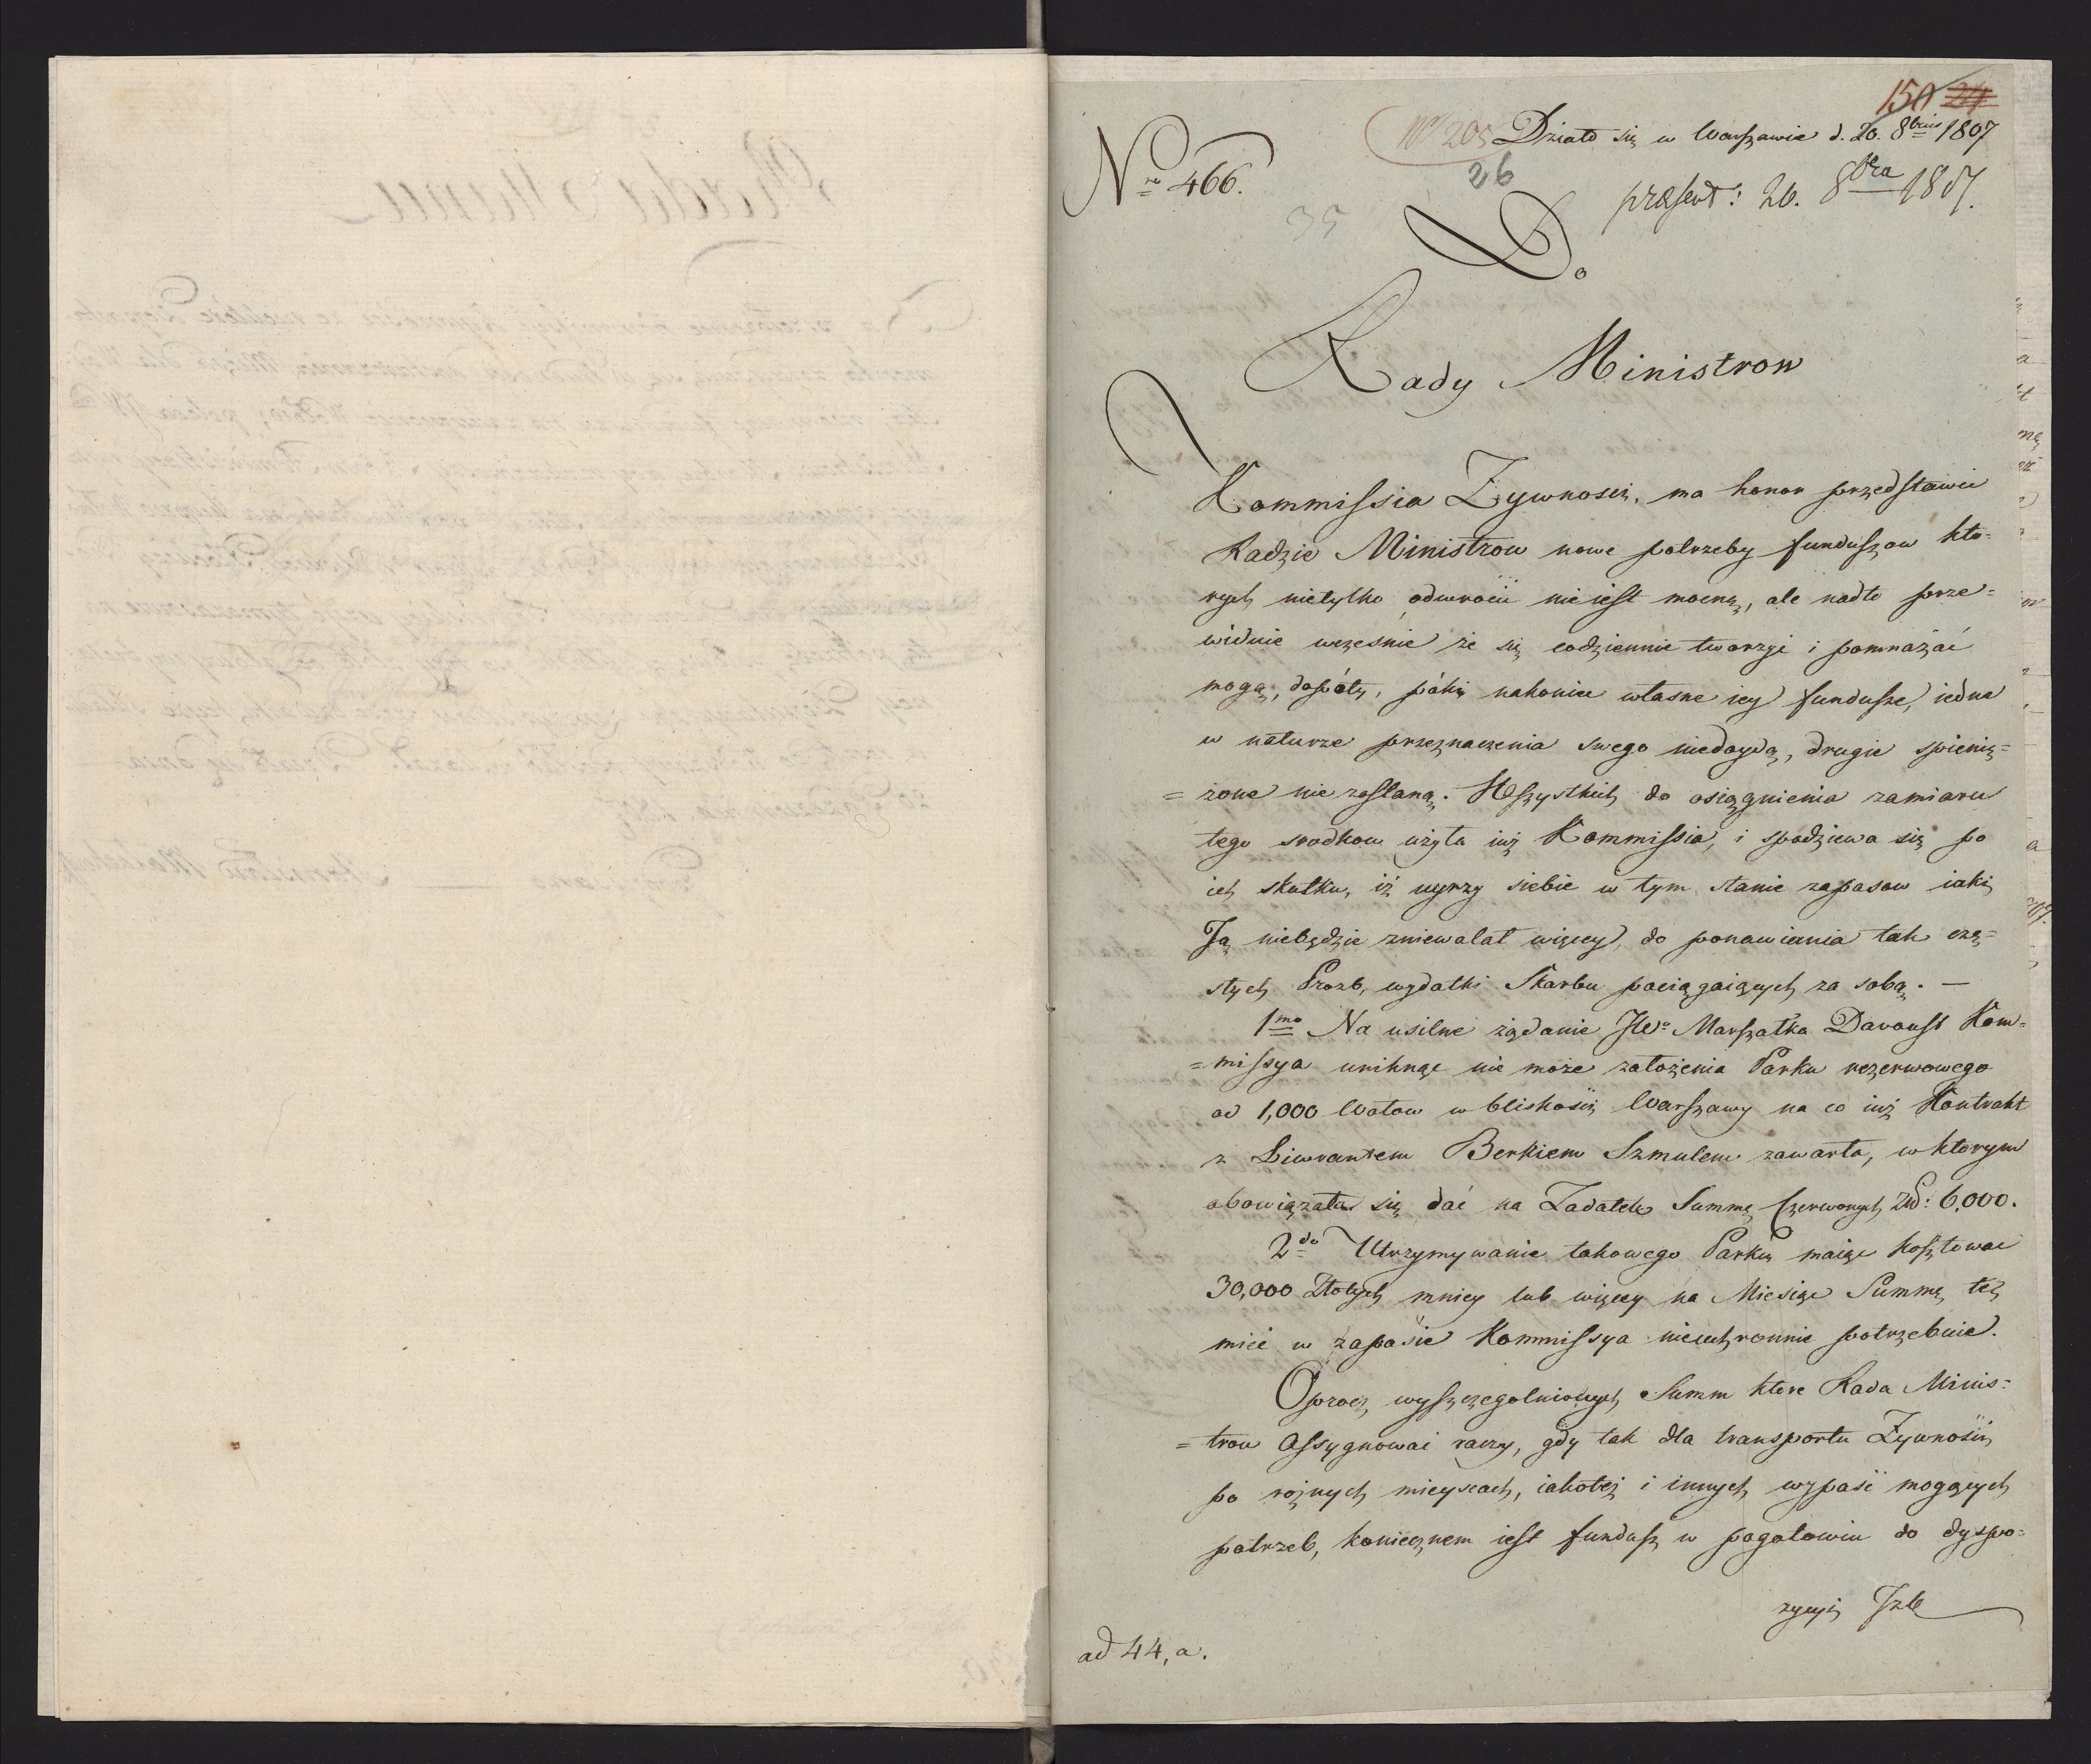 150 24
N 205 Działo się w Warszawie d. 20. 8bris 1807
N ro 466.
26
præsent: 26. 8bra 1807.
35
Do
Rady Ministrow
Kommissia Zywnosci, ma honor przedstawić
Radzie Ministrow nowe potrzeby funduszow kto=
rych nietylko odwrocić nie iest mocną, ale nadto prze=
widuie wcześnie że się codziennie tworzyć i pomnażać
mogą, dopóty, póki nakoniec własne iey fundusze, iedne
w naturze przeznaczenia swego niedoydą, drugie spienię=
= żone nie zostaną. Wszystkich do osiągnienia zamiaru
tego srodkow użyła iuż Kommissia, i spodziewa się po
ich skutku, iż uyrzy siebie w tym stanie zapasow iaki
Ją niebędzie zniewalał więcey, do ponawiania tak czę=
stych Prozb, wydatki Skarbu pociągaiących za sobą. —
1mo Na usilne żądanie JWo Marszałka Davoust Kom=
= missya uniknąc nie może założenia Parku rezerwowego
od 1,000 Wołow w bliskości Warszawy na co iuż Kontrakt
z Liwrantem Berkiem Szmulem zawarła, w ktorym
obowiązała się dać na Zadatek Summę Czerwonych Zło: 6,000.
2do Utrzymywanie takowego Parku maiąc kosztowac
30,000 Złotych mniey lub więcey na Miesiąc Summę tęż
mieć w zapasie Kommissya nieuchronnie potrzebuie.
Oprocz wyszczegolnionych Summ ktore Rada Minis=
= trow Assygnować raczy, gdy tak dla transportu Zywności
po rożnych mieyscach, iakoteż i innych wypaść mogących
potrzeb, koniecznem iest fundusz w pogotowiu do dyspo=
zycyi Izb
ad 44, a.